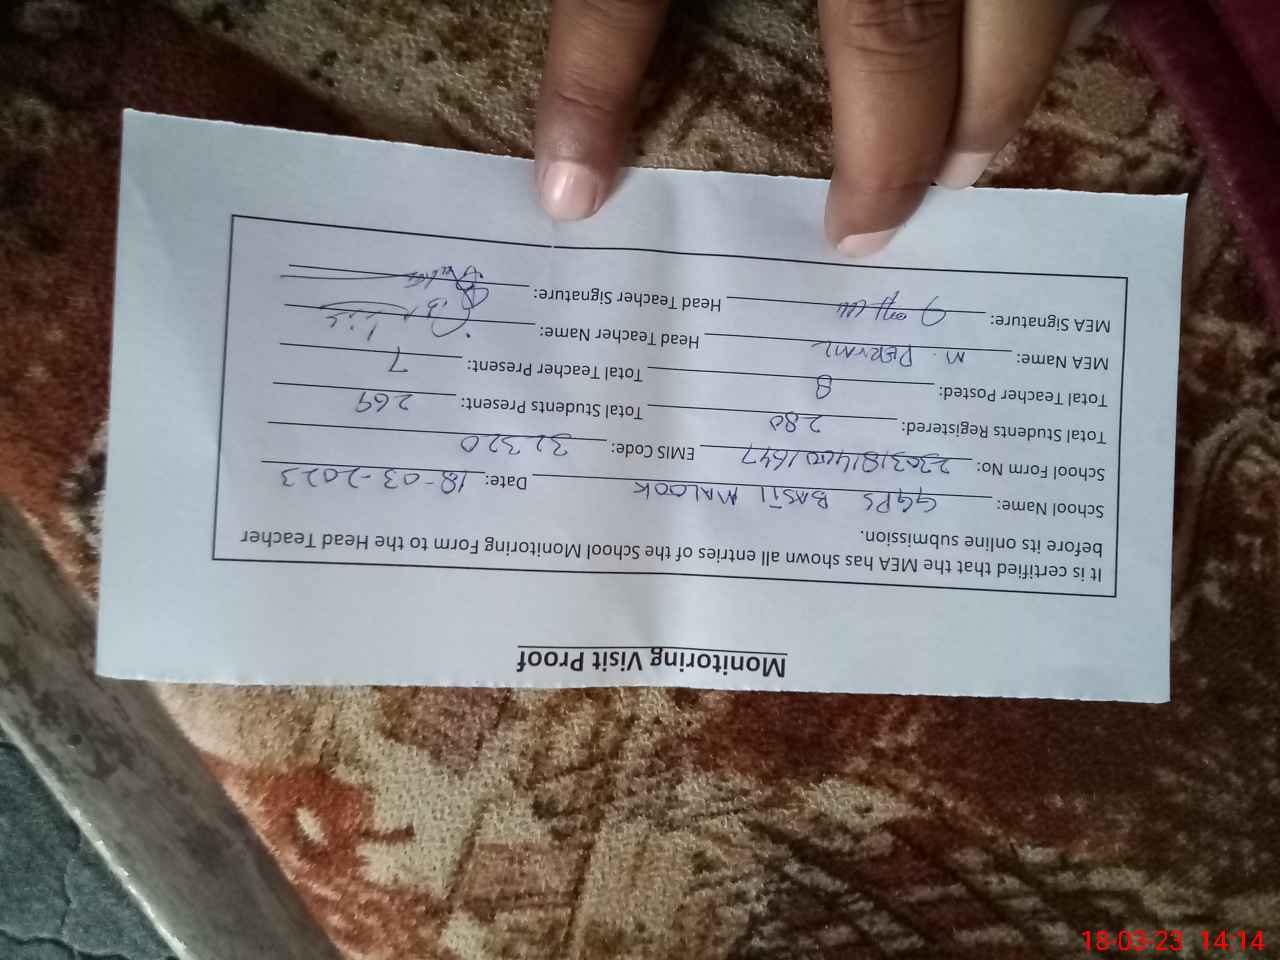 Monitoring Visit Proof
It is certified that the MEA has shown all entries of the School Monitoring Form to the Head Teacher
before its online submission.
School Name: GGPS BASTI MALOOK Date: 18-03-2023
School Form No: EMIS Code: 32320
Total Students Registered: 280 Total Students Present: 269
Total Teacher Posted: 8 Total Teacher Present: 7
MEA Name: M. Head Teacher Name:
MEA Signature: Head Teacher Signature:
18-03-23 14:14